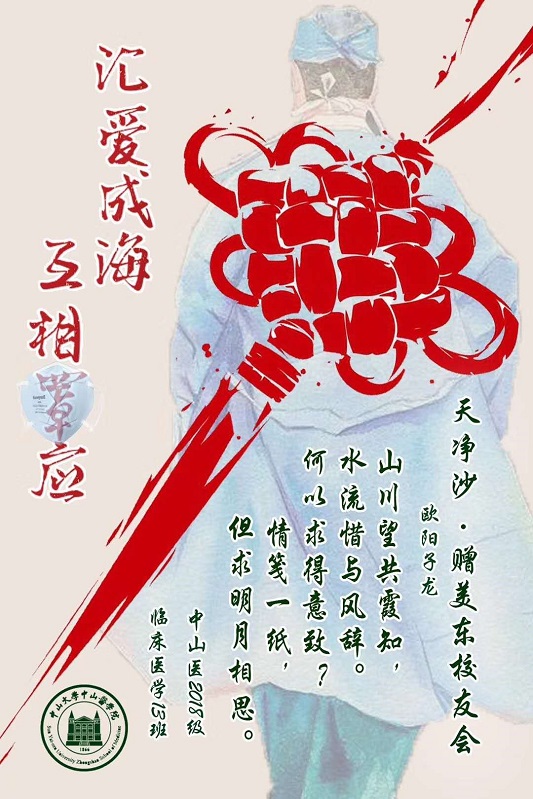 汇爱成海
互相罩应
天净沙·赠美东校友会
欧阳子龙
山川望共霞知，
水流惜与风辞。
何以求得意致？
情笺一纸，
但求明月相思。
中山医2018级
临床医学13班
中山大学中山醫学院
1866
Sun Yat-sen University Zhongshan School of Medicine